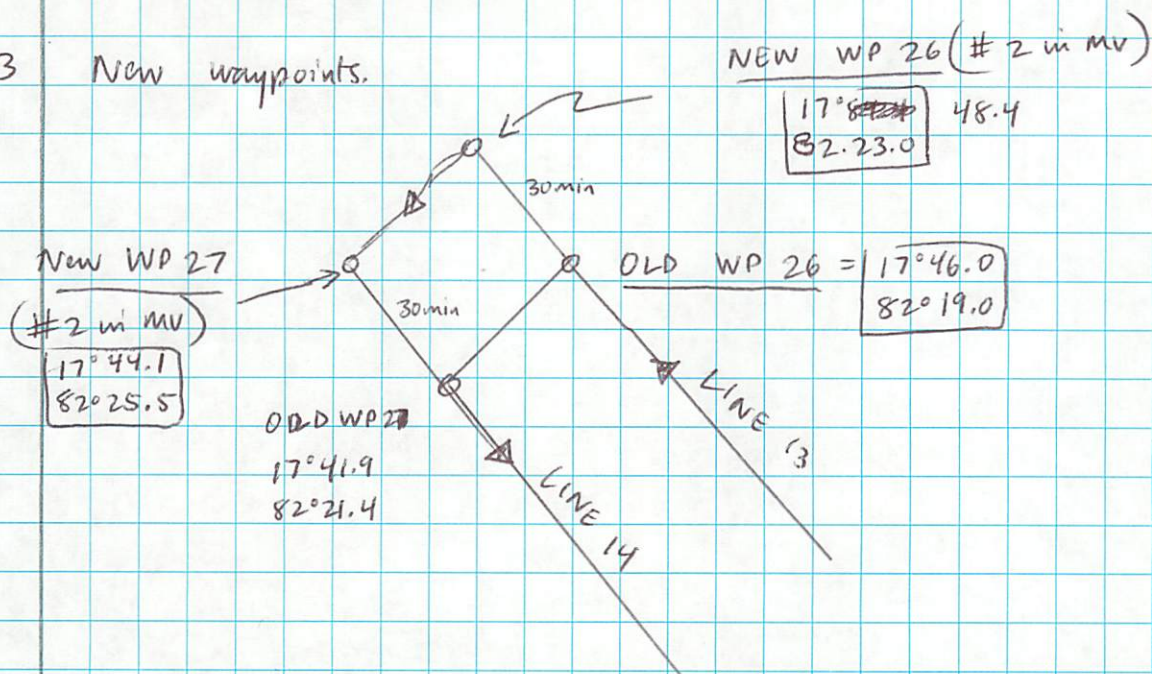 3 New waypoints.
NEW WP 26 (# 2 in MV)
17°8 48.4
82.23.0
30min
New WP 27
(#2 in MV)
17°44.1
82°25.5
30min
OLD WP 26 = 17°46.0
82°19.0
OLD WP 27
17°41.9
82°21.4
LINE 13
LINE 14